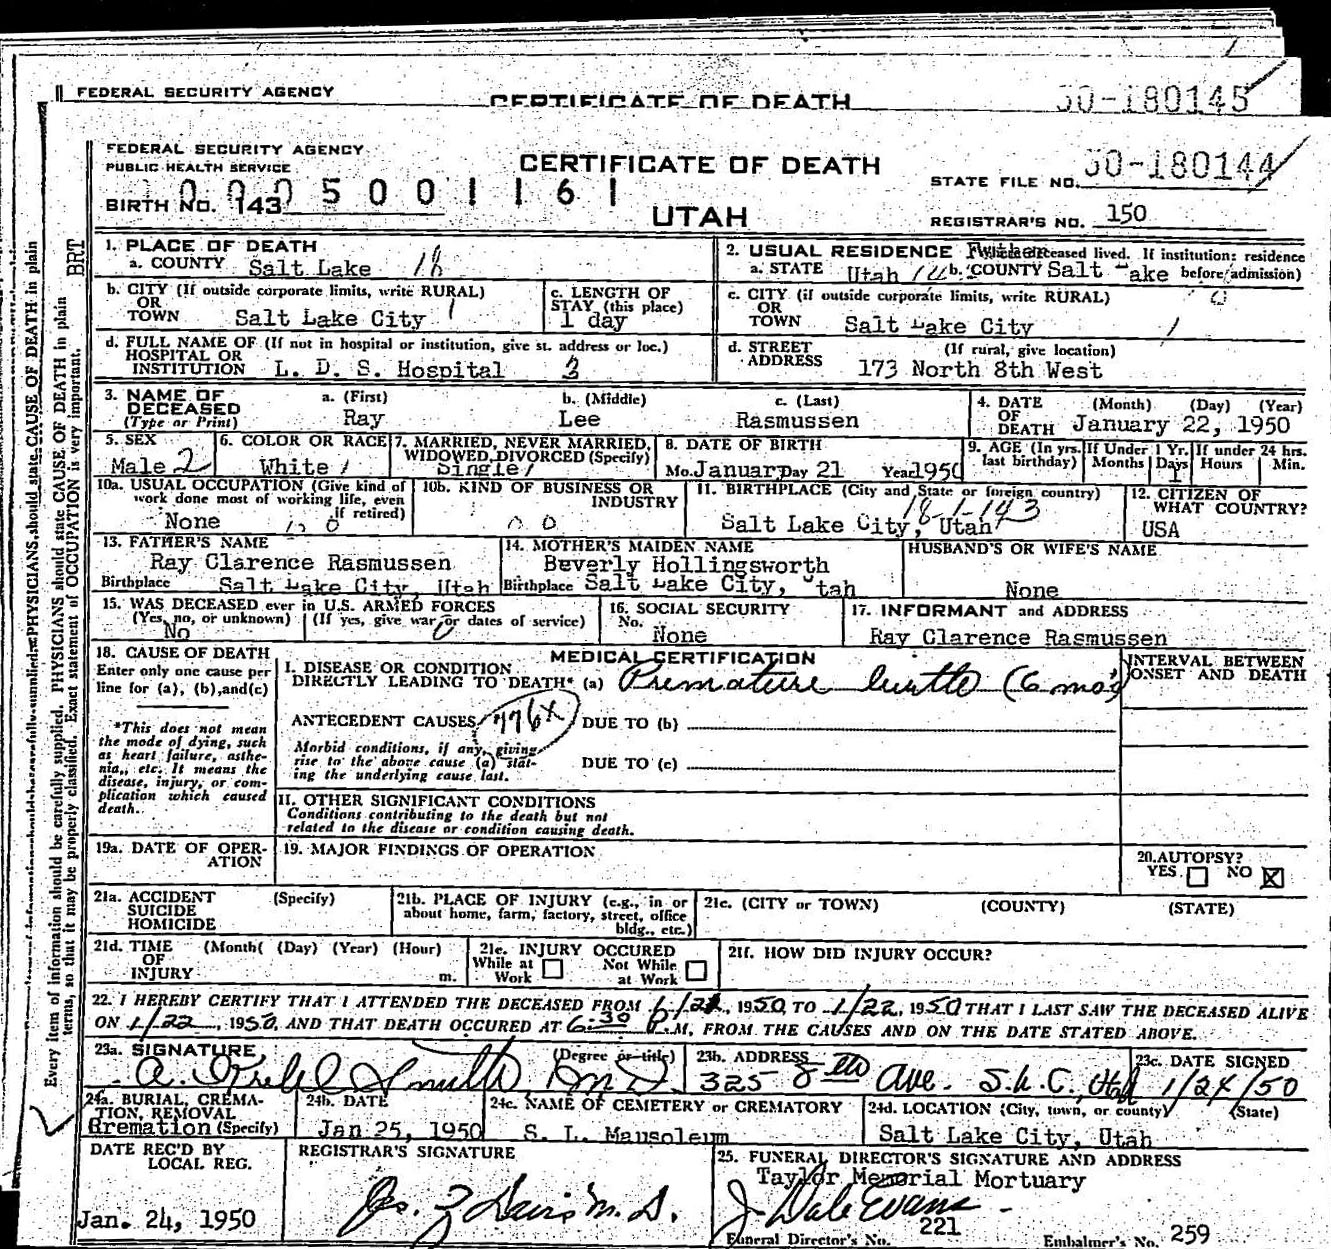 FEDERAL SECURITY AGENCY CERTIFICATE OF DEATH 50-180145
FEDERAL SECURITY AGENCY
PUBLIC HEALTH SERVICE
CERTIFICATE OF DEATH
UTAH
STATE FILE NO. 50-180144
REGISTRAR'S NO. 150
BIRTH NO. 143 5001161
BRT
Every item of information should be carefully supplied. PHYSICIANS should state CAUSE OF DEATH in plain
terms, so that it may be properly classified. Exact statement of OCCUPATION is very important.
1. PLACE OF DEATH
a. COUNTY Salt Lake 18
2. USUAL RESIDENCE deceased lived. If institution: residence
a. STATE Utah b. COUNTY Salt Lake before admission)
b. CITY (If outside corporate limits, write RURAL)
OR
TOWN Salt Lake City
c. LENGTH OF
STAY (this place)
1 day
c. CITY (if outside corporate limits, write RURAL)
OR
TOWN Salt Lake City
d. FULL NAME OF (If not in hospital or institution, give st. address or loc.)
HOSPITAL OR
INSTITUTION L. D. S. Hospital 3
d. STREET (If rural, give location)
ADDRESS 173 North 8th West
3. NAME OF a. (First) b. (Middle) c. (Last)
DECEASED
(Type or Print) Ray Lee Rasmussen
4. DATE (Month) (Day) (Year)
OF
DEATH January 22, 1950
5. SEX
Male 2
6. COLOR OR RACE
White
7. MARRIED, NEVER MARRIED,
WIDOWED DIVORCED (Specify)
Single
8. DATE OF BIRTH
Mo. January Day 21 Year 1950
9. AGE (In yrs. last birthday) If Under 1 Yr. Months Days 1 If under 24 hrs. Hours Min.
10a. USUAL OCCUPATION (Give kind of
work done most of working life, even
if retired)
None
10b. KIND OF BUSINESS OR
INDUSTRY
11. BIRTHPLACE (City and State or foreign country)
18-1-143
Salt Lake City, Utah
12. CITIZEN OF
WHAT COUNTRY?
USA
13. FATHER'S NAME
Ray Clarence Rasmussen
Birthplace Salt Lake City, Utah
14. MOTHER'S MAIDEN NAME
Beverly Hollingsworth
Birthplace Salt Lake City, Utah
HUSBAND'S OR WIFE'S NAME
None
15. WAS DECEASED ever in U.S. ARMED FORCES
(Yes, no, or unknown) (If yes, give war or dates of service)
No
16. SOCIAL SECURITY
No. None
17. INFORMANT and ADDRESS
Ray Clarence Rasmussen
18. CAUSE OF DEATH
Enter only one cause per
line for (a), (b), and (c)
*This does not mean
the mode of dying, such
as heart failure, asthe-
nia, etc. It means the
disease, injury, or com-
plication which caused
death.
MEDICAL CERTIFICATION
I. DISEASE OR CONDITION
DIRECTLY LEADING TO DEATH* (a) Premature birth (6 mo's)
INTERVAL BETWEEN
ONSET AND DEATH
ANTECEDENT CAUSES 776X DUE TO (b)
Morbid conditions, if any, giving
rise to the above cause (a) stat-
ing the underlying cause last.
DUE TO (c)
II. OTHER SIGNIFICANT CONDITIONS
Conditions contributing to the death but not
related to the disease or condition causing death.
19a. DATE OF OPER-
ATION
19. MAJOR FINDINGS OF OPERATION
20. AUTOPSY?
YES NO X
21a. ACCIDENT (Specify)
SUICIDE
HOMICIDE
21b. PLACE OF INJURY (e.g., in or
about home, farm, factory, street, office
bldg., etc.)
21c. (CITY or TOWN) (COUNTY) (STATE)
21d. TIME (Month( (Day) (Year) (Hour)
OF
INJURY m.
21e. INJURY OCCURED
While at Work Not While at Work
21f. HOW DID INJURY OCCUR?
22. I HEREBY CERTIFY THAT I ATTENDED THE DECEASED FROM 1950 TO 1/22, 1950 THAT I LAST SAW THE DECEASED ALIVE
ON 1/22, 1950, AND THAT DEATH OCCURED AT 6:30 .M, FROM THE CAUSES AND ON THE DATE STATED ABOVE.
23a. SIGNATURE (Degree or title)
A. Smith M.D.
23b. ADDRESS
325 8th Ave. S.L.C., Utah
23c. DATE SIGNED
1/24/50
24a. BURIAL, CREMA-
TION, REMOVAL
Bremation (Specify)
24b. DATE
Jan 25, 1950
24c. NAME OF CEMETERY or CREMATORY
S. L. Mausoleum
24d. LOCATION (City, town, or county) (State)
Salt Lake City, Utah
DATE REC'D BY
LOCAL REG.
Jan. 24, 1950
REGISTRAR'S SIGNATURE
25. FUNERAL DIRECTOR'S SIGNATURE AND ADDRESS
Taylor Memorial Mortuary
J. Dale Evans
Funeral Director's No. 221
Embalmer's No. 259